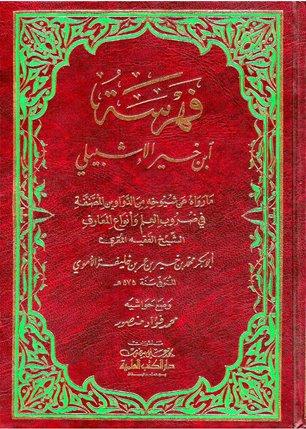 فهرسة
ابن خير الإشبيلي
ما رواه عن شيوخه من الدواوين المصنفة
في ضروب العلم وأنواع المعارف
الشيخ الفقيه المقرئ
أبو بكر محمد بن خير بن عمر بن خليفة الأموي
المتوفى سنة ٥٧٥ هـ
وضع حواشيه
محمد فؤاد منصور
منشورات
محمد علي بيضون
دار الكتب العلمية